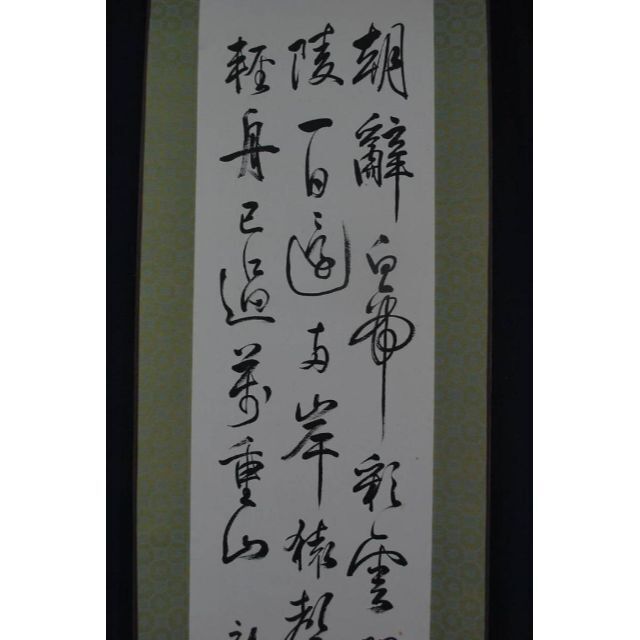 朝辭白帝彩雲間
陵一日還兩岸猿聲
輕舟已過萬重山